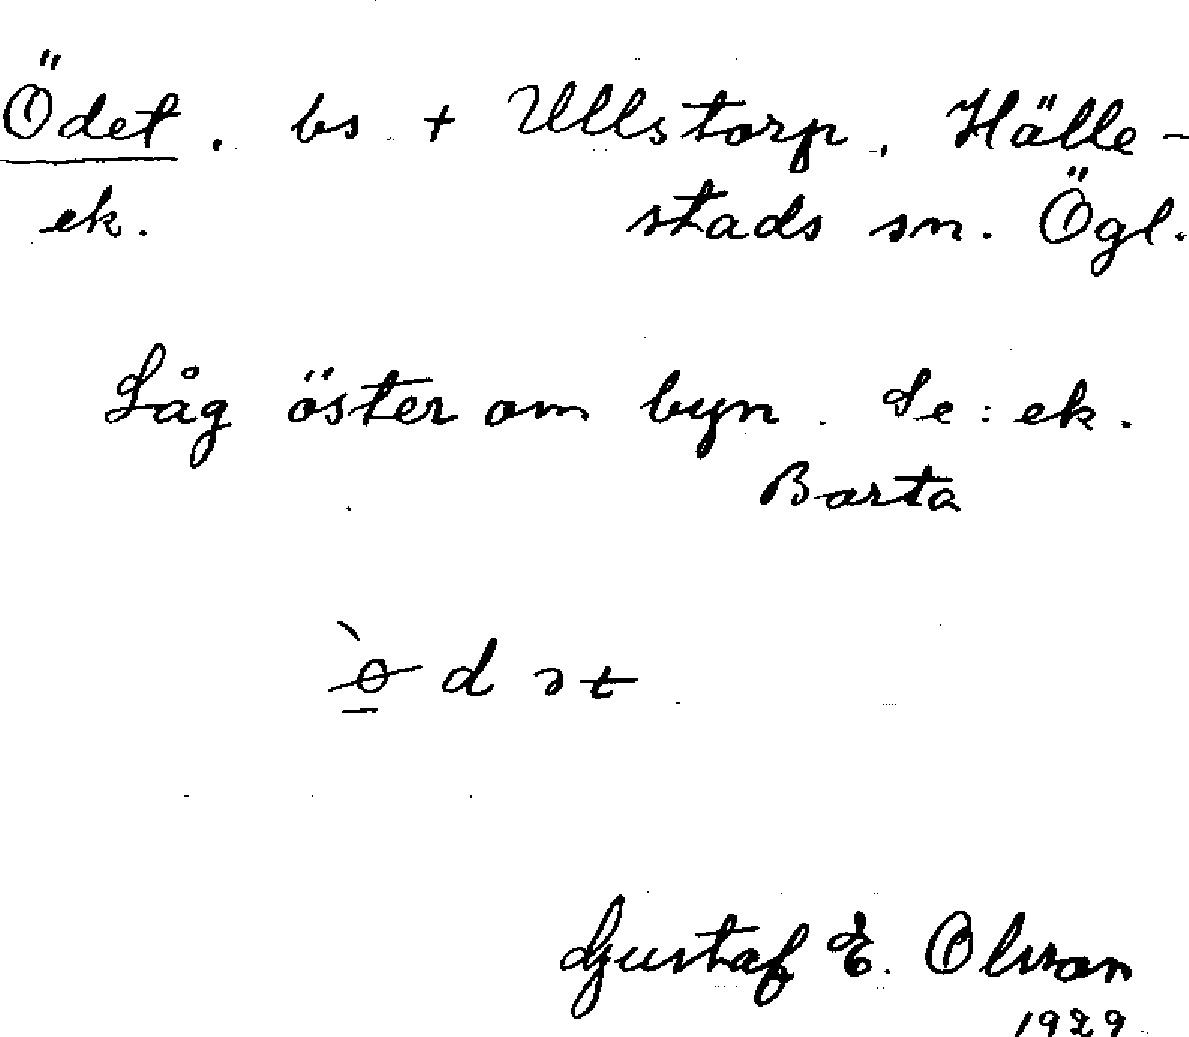 Ödet. bs + Ullstorp, Hälle-
ek. stads sn. Ögl.
Låg öster om byn. Se: ek.
Barta
Gustaf E. Olsson
1929